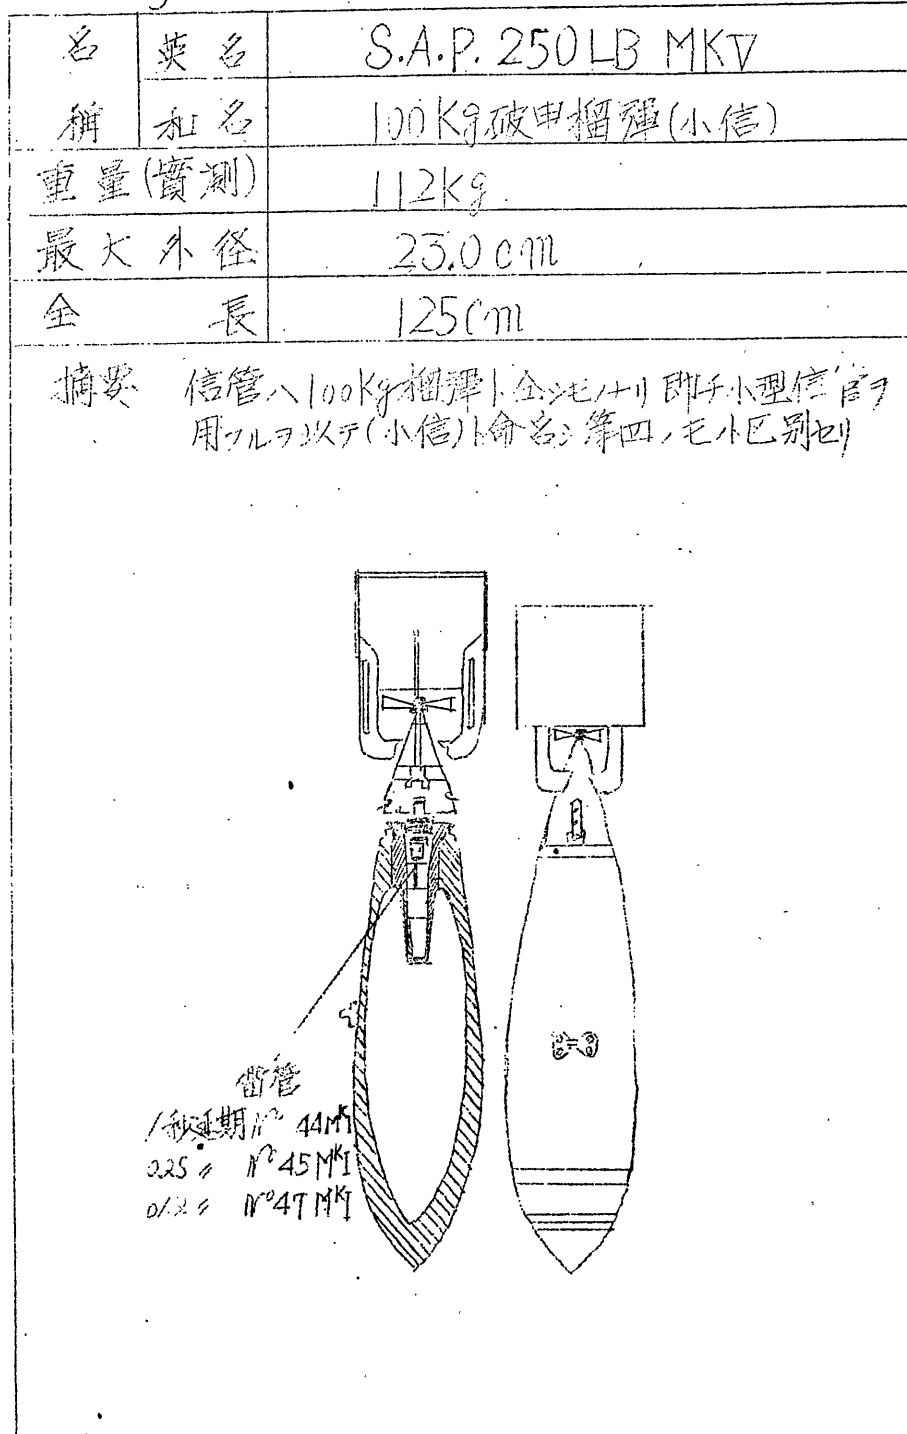 名稱 英名 S.A.P. 250LB MKV
和名 100Kg破甲榴彈(小信)
重量(實測) 112Kg.
最大外径 23.0cm
全長 125cm
摘要 信管ハ100Kg榴彈ト仝シモノナリ即チ小型信管ヲ
用フルヲ以テ(小信)ト命名シ第四ノモノト区別セリ
雷管
1秒延期 Nº 44MKI
0.25 〃 Nº 45MKI
Nº 47MKI